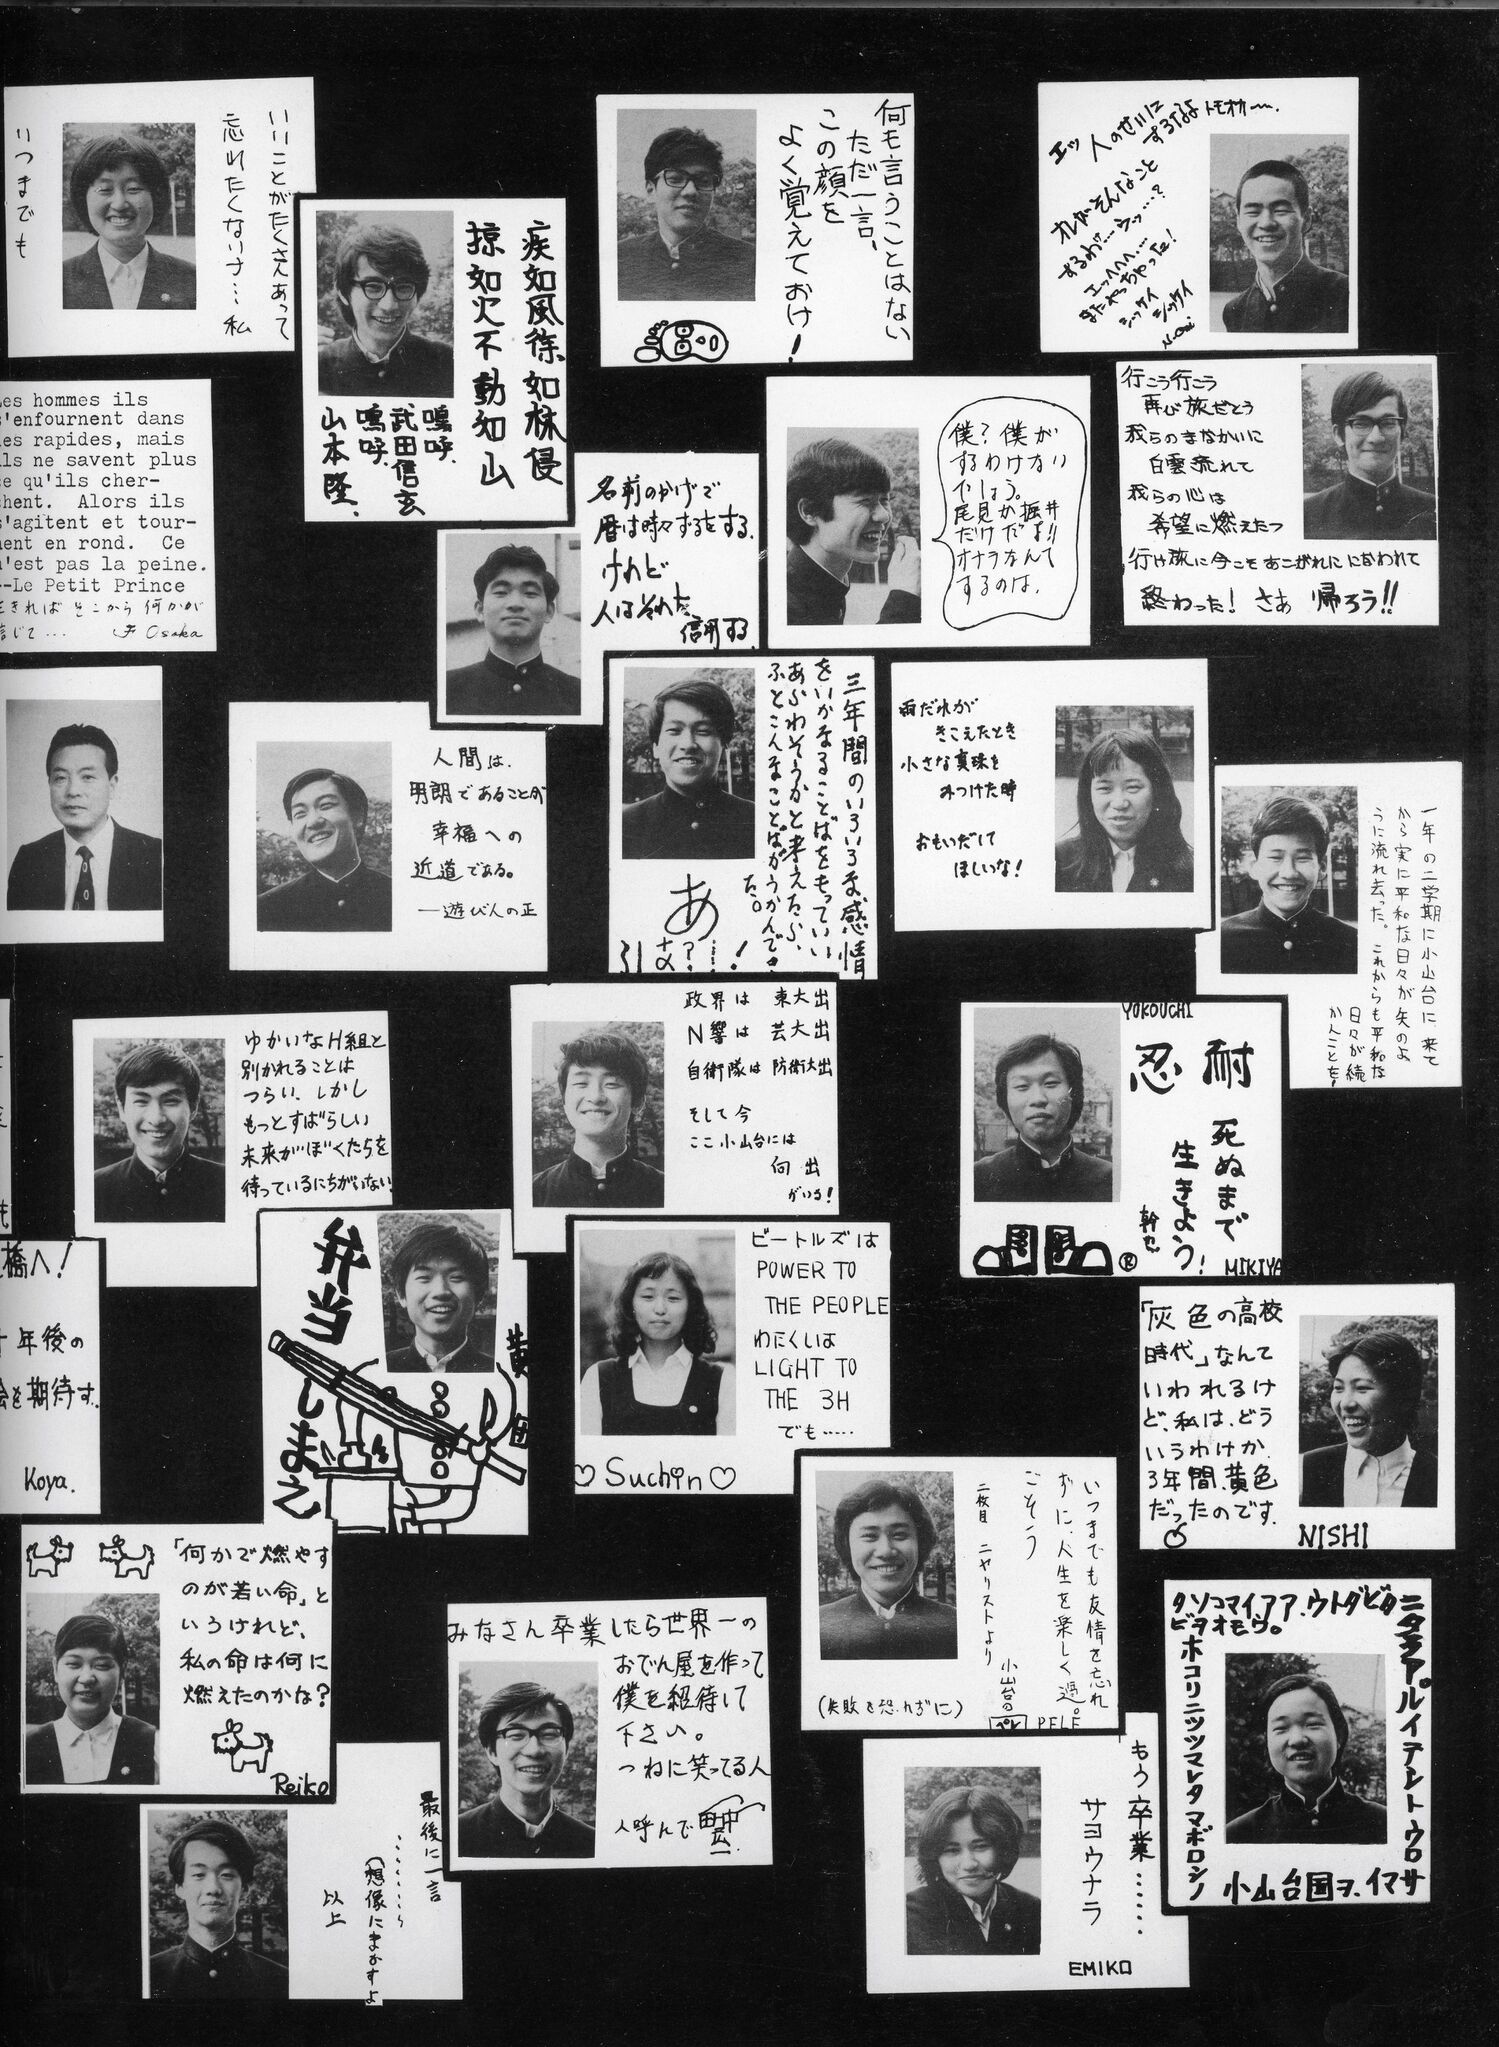 いいことがたくさんあって
忘れたくないけど…私
いつまでも
疾如風徐如林侵
掠如火不動如山
嗚呼、
武田信玄
嗚呼、
山本隆、
何も言うことはない
ただ一言、
この顔を
よく覚えておけ!
エッ 人のせいに
するなよ トモオカ〜、
オレがそんなこと
するわ゛…ウッ…?
エッヘヘヘ…
またやっちゃった!
シッケイ
シッケイ
Les hommes ils
s'enfournent dans
les rapides, mais
ils ne savent plus
ce qu'ils cher-
chent. Alors ils
s'agitent et tour-
nent en rond. Ce
n'est pas la peine.
--Le Petit Prince
生きれば そこから 何かが
信じて…
Osaka
名前のかげで
暦は時々ずるをする。
けれど
人はそれを
信用する。
僕?僕が
するわけない
でしょう。
尾見か堀井
だけだよ!!
オナラなんて
するのは、
行こう行こう
再び旅だとう
我らのまなかいに
白雲流れて
我らの心は
希望に燃えたつ
行け旅に今こそあこがれに
終わった! さあ 帰ろう!!
人間は、
明朗であることが
幸福への
近道である。
―遊び人の正
三年間のいろいろな感情
をいかなることばをもっていい
あらわそうかと考えたら、
ふとこんなことばがうかんでき
た。
あ
雨だれが
きこえたとき
小さな真珠を
みつけた時
おもいだして
ほしいな!
一年の二学期に小山台に来て
から実に平和な日々が矢のよ
うに流れ去った。これからも平和な
日々が続
かんことを!
ゆかいなH組と
別かれることは
つらい、しかし
もっとすばらしい
未来がぼくたちを
待っているにちがいない
政界は 東大出
N響は 芸大出
自衛隊は 防衛大出
そして今
ここ小山台には
向 出
がいる!
YOKOUCHI
耐
忍
死ぬまで
生きよう!
幹也
MIKIYA
橋へ!
十年後の
会を期待す。
Koya.
弁当
しまえ
黄
団
ビートルズは
POWER TO
THE PEOPLE
わたくしは
LIGHT TO
THE 3H
でも……
♡Suchin♡
「灰色の高校
時代」なんて
いわれるけ
ど、私は、どう
いうわけか、
3年間、黄色
だったのです。
NISHI
「何かで燃やす
のが若い命」と
いうけれど、
私の命は何に
燃えたのかな?
Reiko
いつまでも友情を忘れ
ずに、人生を楽しく過。
ごそう
二枚目 ニヤリストより
小山台の
ペレ PELE
(失敗を恐れずに)
みなさん卒業したら世界一の
おでん屋を作って
僕を招待して
下さい。
つねに笑ってる人
人呼んで田中
タソコマイアア.ウトダビタ
ビヲオモウ。
ニタヲアルイテントウロサ
ホコリニツツマレタマボロシノ
小山台国ヲ、イマサ
最後に一言
………
(想像にまかすよ
以上
「もう卒業……
サヨウナラ
EMIKO